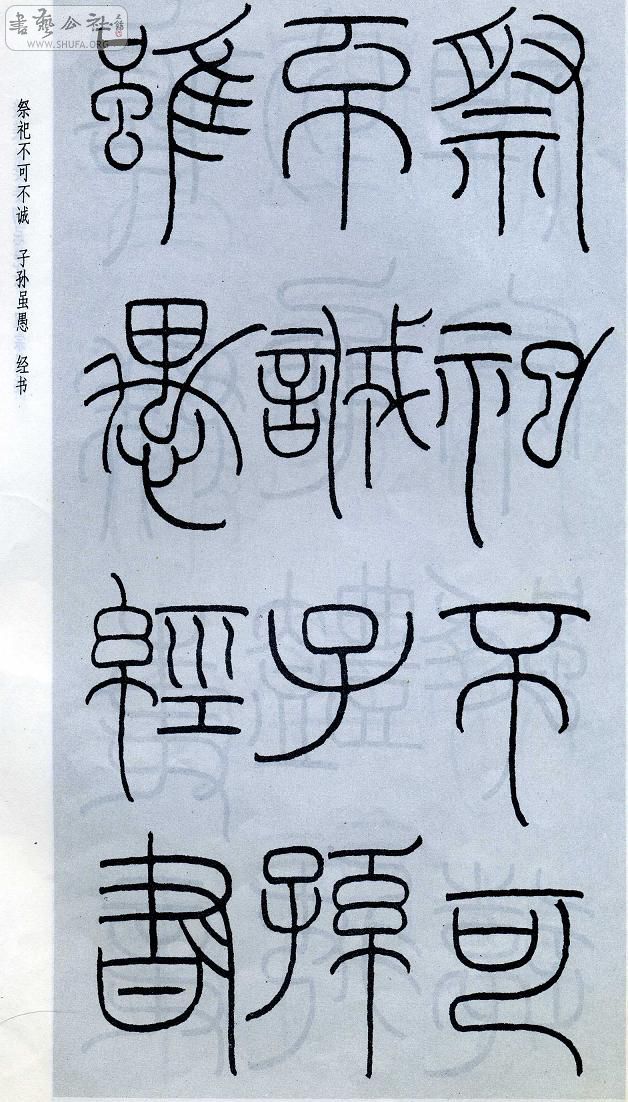 書藝公社
WWW.SHUFA.ORG
祭祀不可
不誠子孫
雖愚經書
祭祀不可不诚 子孙虽愚 经书